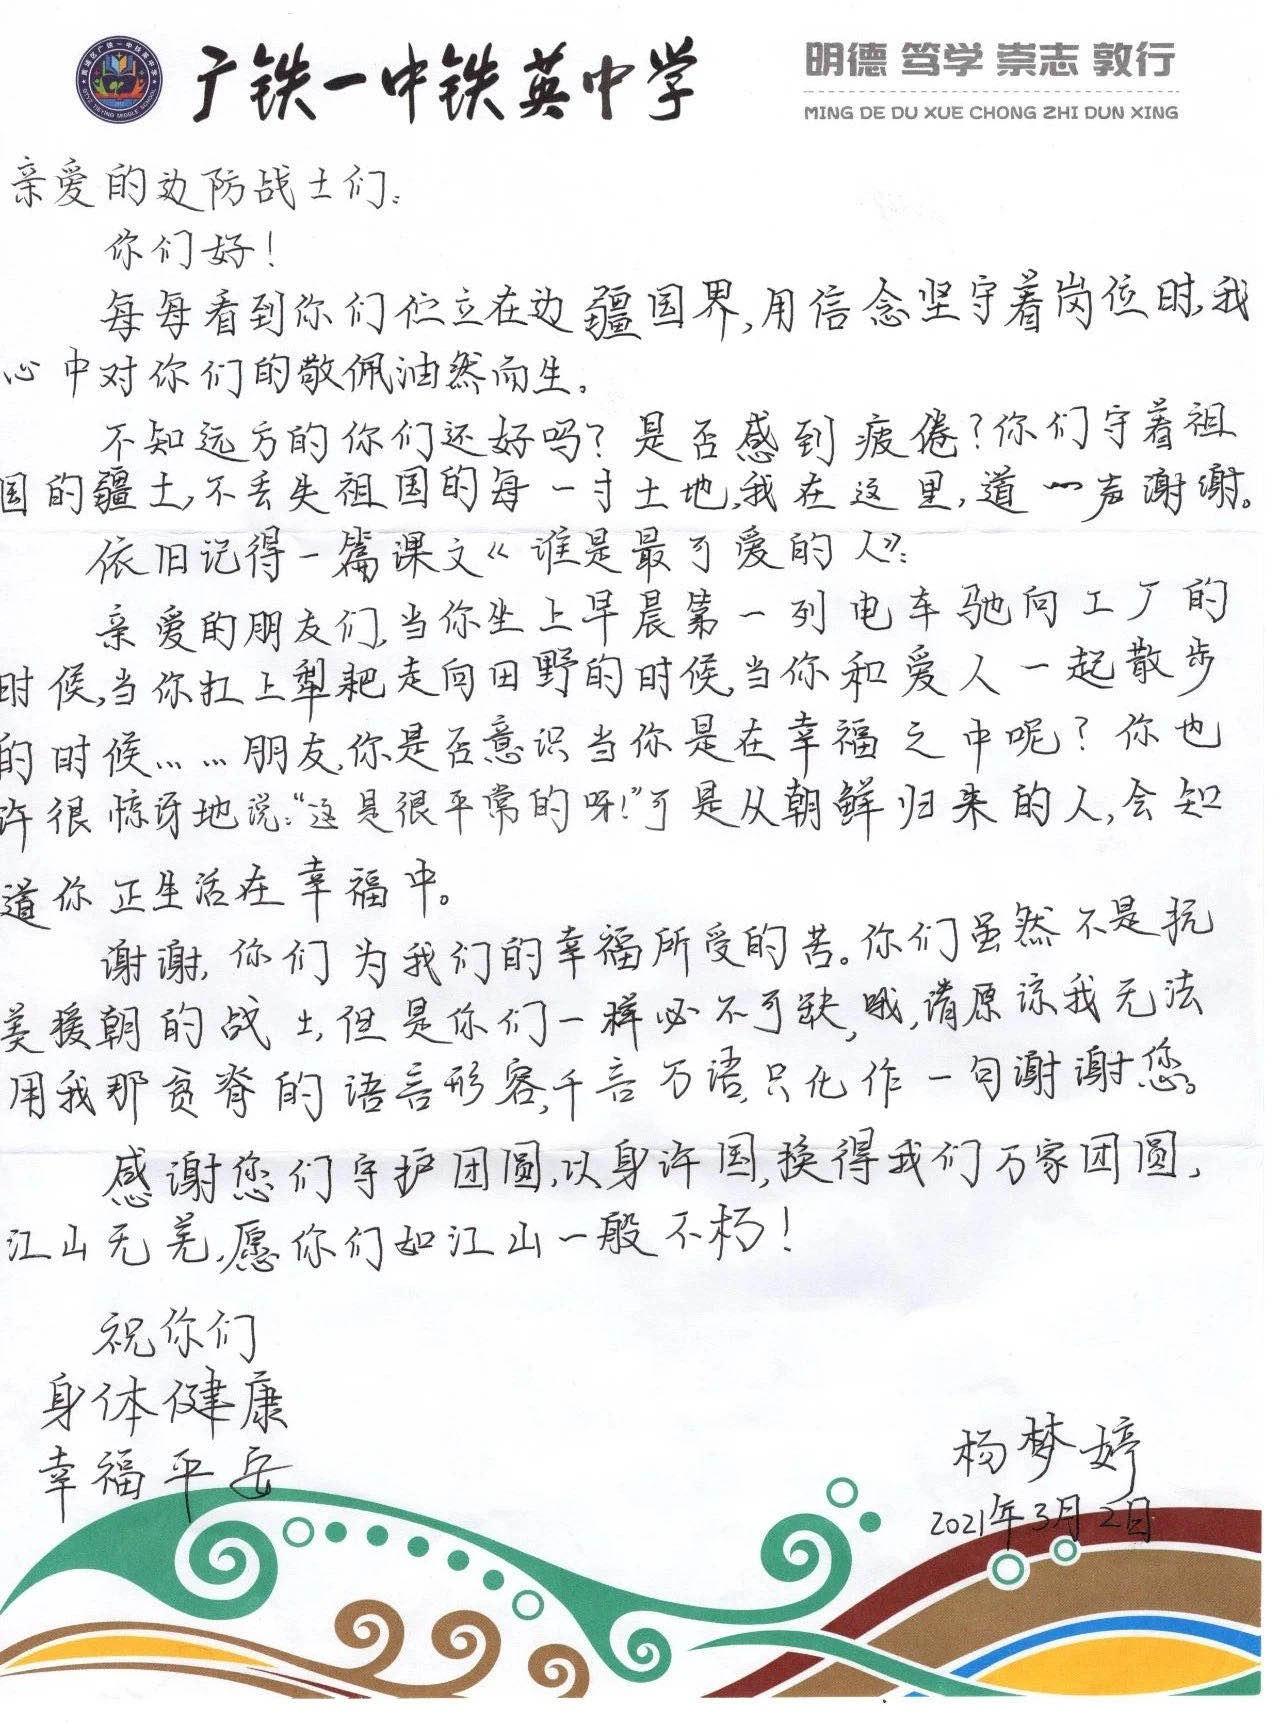 广铁一中铁英中学
明德 笃学 崇志 敦行
MING DE DU XUE CHONG ZHI DUN XING
亲爱的边防战士们:
你们好!
每每看到你们伫立在边疆国界,用信念坚守着岗位时,我
心中对你们的敬佩油然而生。
不知远方的你们还好吗?是否感到疲倦?你们守着祖
国的疆土,不丢失祖国的每一寸土地,我在这里,道一声谢谢。
依旧记得一篇课文《谁是最可爱的人》:
亲爱的朋友们,当你坐上早晨第一列电车驰向工厂的
时候,当你扛上犁耙走向田野的时候,当你和爱人一起散步
的时候……朋友,你是否意识当你是在幸福之中呢?你也
许很惊讶地说:“这是很平常的呀!”可是从朝鲜归来的人,会知
道你正生活在幸福中。
谢谢,你们为我们的幸福所受的苦。你们虽然不是抗
美援朝的战士,但是你们一样必不可缺,哦,请原谅我无法
用我那贫脊的语言形容,千言万语,只化作一句谢谢您。
感谢您们守护团圆,以身许国,换得我们万家团圆,
江山无恙,愿你们如江山一般不朽!
祝你们
身体健康
幸福平岳
杨梦婷
2021年3月2日